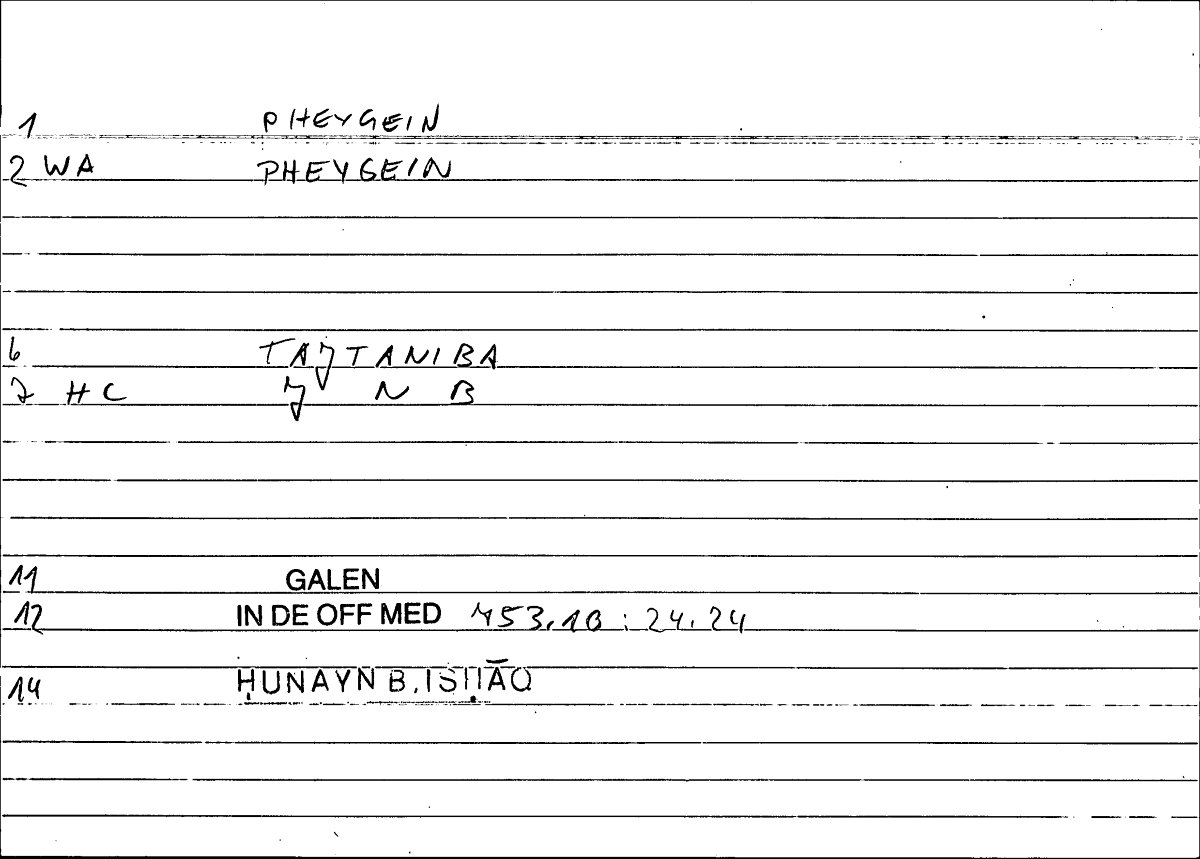 1 PHEYGEIN
2 WA PHEYGEIN
6 TAJTANIBA
7 HC J N B
11 GALEN
12 IN DE OFF MED 753,10 : 24.24
14 ḤUNAYN B. ISḤĀQ